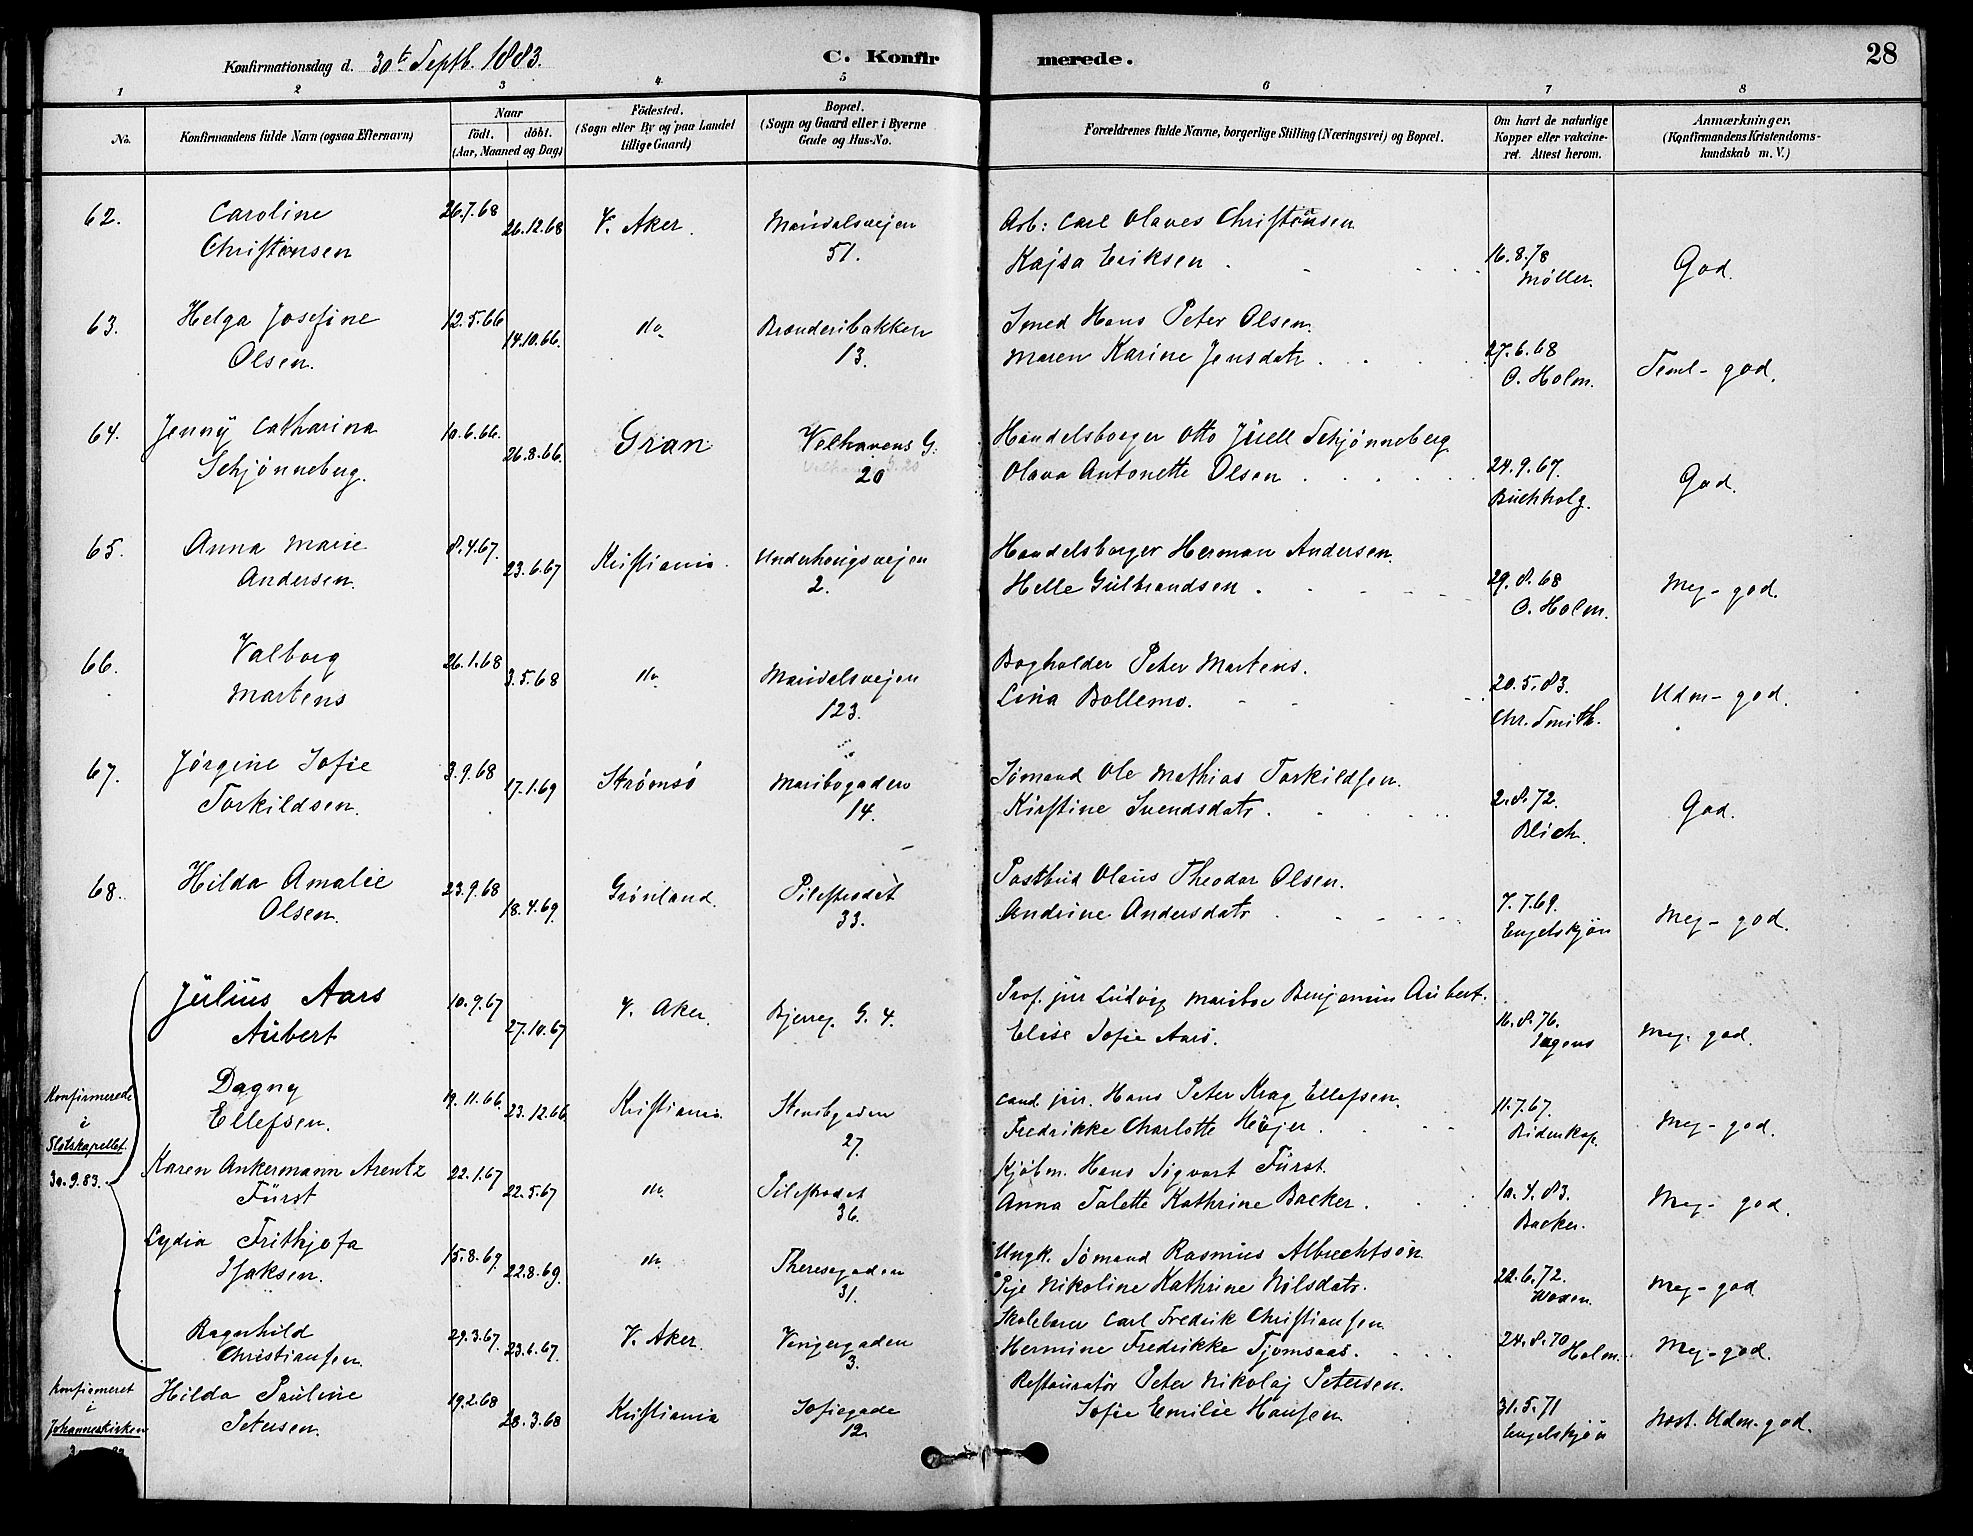 Konfirmationsdag d. 30te Septb. 1883.
C. Konfirmerede.
28
1 2 3 4 5 6 7 8
No.
Konfirmandens fulde Navn (ogsaa Efternavn)
Naar
födt. döbt.
(Aar, Maaned og Dag)
Födested.
(Sogn eller By og paa Landet
tillige Gaard)
Bopæl.
(Sogn og Gaard eller i Byerne
Gade og Hus-No.
Forældrenes fulde Navne, borgerlige Stilling (Næringsvei) og Bopæl.
Om havt de naturlige
Kopper eller vakcine-
ret. Attest herom.
Anmærkninger.
(Konfirmandens Kristendoms-
kundskab m. V.)
62. Caroline 26.7.68 26.12.68 V. Aker. Maridalsvejen Arb: Carl Olaves Christensen
Christensen 51. Kajsa Eriksen 16.8.78 God.
Möller.
63. Helga Josefine 12.5.66 14.10.66. do Brænderibakken Smed Hans Peter Olsen.
Olsen. 13. Maren Karine Jensdatr 27.6.68 Teml-god.
O. Holm.
64. Jenny Catharina 10.6.66. 26.8.66. Gran Velhavens G. Handelsborger Otto Juell Schjønneberg
Schjønneberg. 20 Olava Antonette Olsen 24.9.67. God.
Buchholz.
65. Anna Marie 8.4.67. 23.6.67 Kristiania. Underhaugsvejen Handelsborger Herman Andersen.
Andersen. 2. Helle Gulbrandsen 29.8.68 Meg-god.
O. Holm.
66. Valborg 26.1.68 3.5.68 do Maridalsvejen Bogholder Peter Martens.
Martens 123. Lina Bollemo. 20.5.83. Udm-god.
Chr. Smith.
67. Jørgine Sofie 3.9.68 17.1.69 Strømsö Maribogaden Sømand Ole Mathias Torkildsen.
Torkildsen. 14. Kirstine Svendsdatr. 2.8.72. God.
Blich.
68. Hilda Amalie 23.9.68 18.4.69. Grönland. Pilestrædet Postbud Olaus Theodor Olsen.
Olsen. 33. Andrine Andersdatr 7.7.69. Meg-god.
Engelskjön
Julius Aars 10.9.67 27.10.67 V. Aker. Bjerreg. G. 4. Prof. jur Ludvig Mariboe Benjamin Aubert.
Aubert Elise Sofie Aars. 16.8.76. Meg. god.
Konfirmerede
i
Slotskapellet
30.9.83.
Dagny 19.11.66. 23.12.66 Kristiania. Stensbgaden cand. jur. Hans Peter Krag Ellefsen.
Ellefsen. 27. Fredrikke Charlotte Höjer. 11.7.67. Meg-god.
Karen Ankermann Arentz 22.1.67 22.5.67 do Pilestrædet Kjöbm. Hans Sigvart Fürst.
Fürst 36. Anna Talette Kathrine Backer. 10.4.83. Meg-god.
Backer.
Lydia Frithjofa 15.8.69. 22.8.69. do Theresegaden Ungk. Sømand Rasmus Albrechtsön
Isaksen. 31. Pige Nikoline Kathrine Nilsdatr. 22.6.72. Meg-god
Ragnhild 29.3.67. 23.6.67. V. Aker. Vingergaden Skolelærer Carl Fredrik Christiansen
Christiansen. 3. Hermine Fredrikke Tjomsaas. 24.8.70 Holm. Meg-god.
Konfirmeret
i
Johanneskirken
Hilda Pauline 19.2.68 28.3.68 Kristiania Sofiegade Restauratör Peter Nikolaj Petersen.
Petersen. 12. Sofie Emilie Hansen. 31.5.71 Næst. Udm-god.
Engelskjön